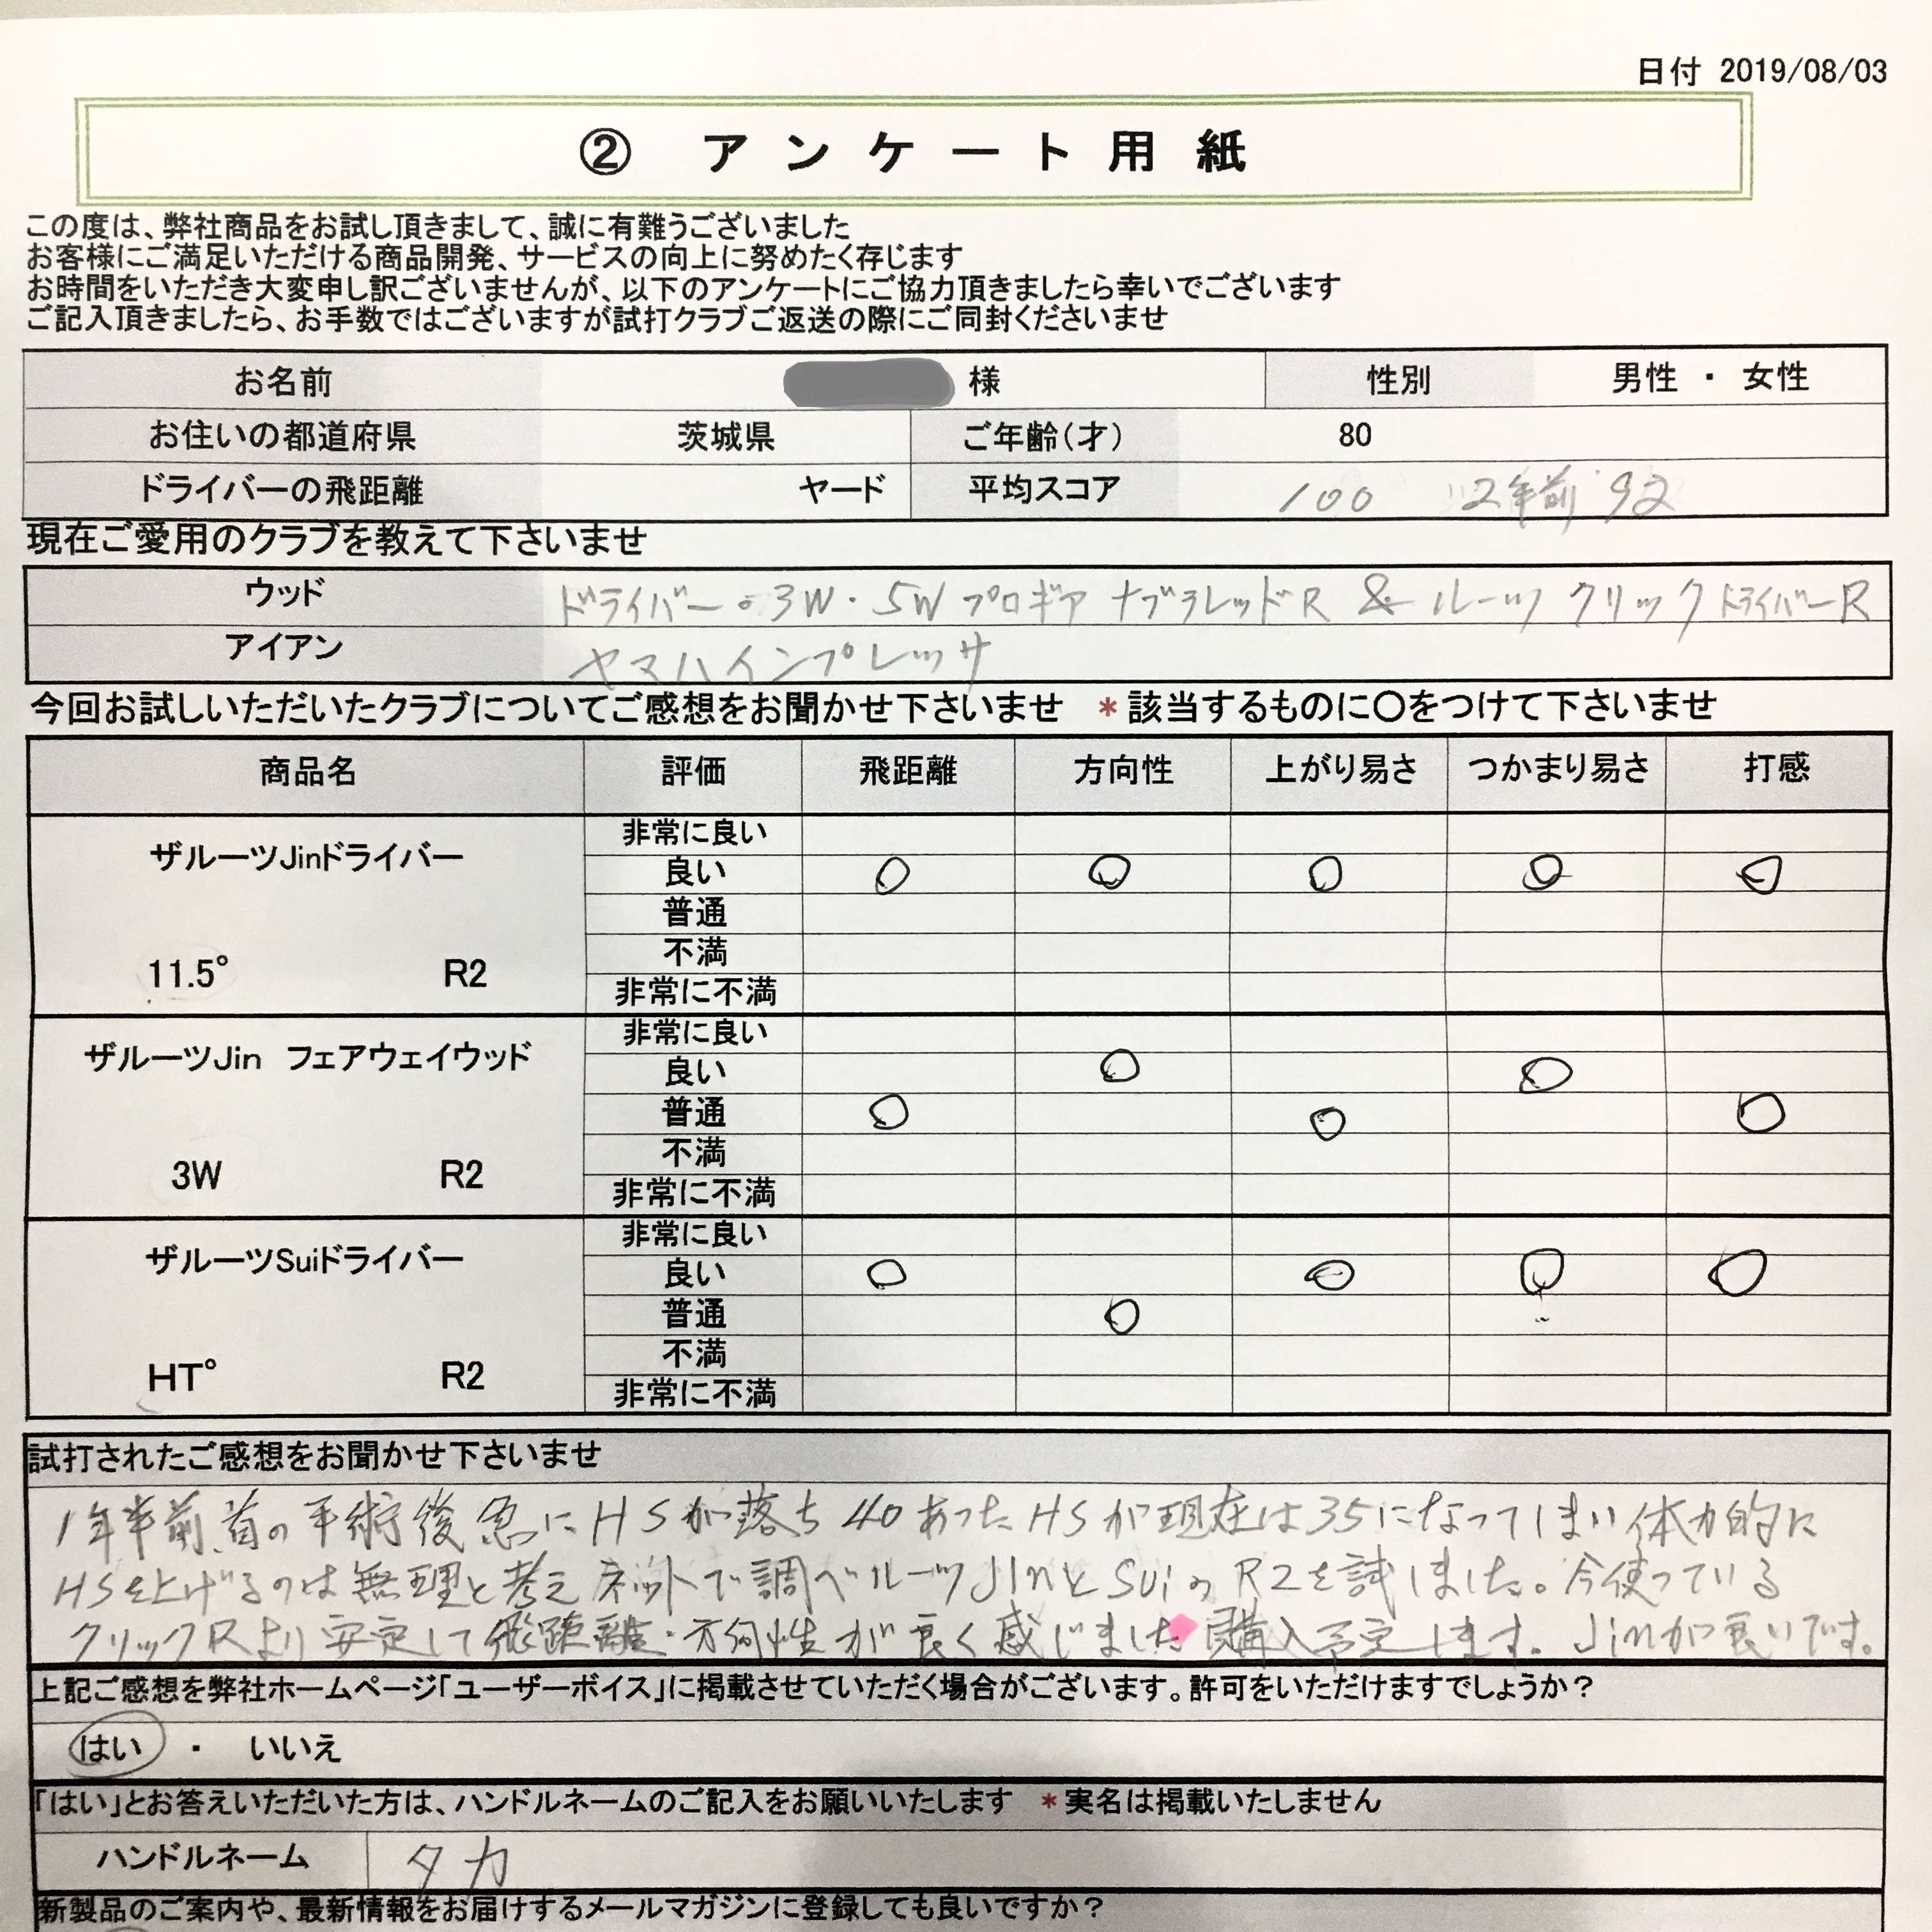 日付 2019/08/03
② アンケート用紙
この度は、弊社商品をお試し頂きまして、誠に有難うございました
お客様にご満足いただける商品開発、サービスの向上に努めたく存じます
お時間をいただき大変申し訳ございませんが、以下のアンケートにご協力頂きましたら幸いでございます
ご記入頂きましたら、お手数ではございますが試打クラブご返送の際にご同封くださいませ
お名前 様 性別 男性 ・ 女性
お住いの都道府県 茨城県 ご年齢(才) 80
ドライバーの飛距離 ヤード 平均スコア 100 2年前 92
現在ご愛用のクラブを教えて下さいませ
ウッド ドライバー・3W・5W プロギア ナブラレッドR & ルーツ クリックドライバーR
アイアン ヤマハインプレッサ
今回お試しいただいたクラブについてご感想をお聞かせ下さいませ *該当するものに〇をつけて下さいませ
商品名 評価 飛距離 方向性 上がり易さ つかまり易さ 打感
ザルーツJinドライバー
11.5° R2
非常に良い
良い
普通
不満
非常に不満
ザルーツJin フェアウェイウッド
3W R2
非常に良い
良い
普通
不満
非常に不満
ザルーツSuiドライバー
HT° R2
非常に良い
良い
普通
不満
非常に不満
試打されたご感想をお聞かせ下さいませ
1年半前首の手術後急にHSが落ち40あったHSが現在は35になってしまい体力的に
HSを上げるのは無理と考えネットで調べルーツJinとSuiのR2を試しました。今使っている
クリックRより安定して飛距離・方向性が良く感じました購入予定します。Jinが良いです。
上記ご感想を弊社ホームページ「ユーザーボイス」に掲載させていただく場合がございます。許可をいただけますでしょうか?
はい ・ いいえ
「はい」とお答えいただいた方は、ハンドルネームのご記入をお願いいたします *実名は掲載いたしません
ハンドルネーム タカ
新製品のご案内や、最新情報をお届けするメールマガジンに登録しても良いですか?